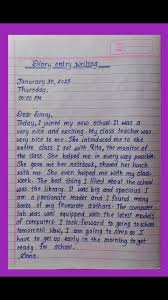 Diary entry writing
January 30, 2025
Thursday,
10:00 PM
Dear Diary,
Today, I joined my new school. It was a
very nice and exciting. My class teacher was
very nice to me. She introduced me to the
entire class. I sat with Rita, the monitor of
the class. She helped me in every way possible.
She gave me her notebook, shared her lunch
with me. She even helped me with my class-
work. The best thing I liked about the school
was the library. It was big and spacious. I
am a passionate reader and I found many
books of my favourite authors. The computer
lab was well equipped with the latest models
of computers. I look forward to going to school
tomorrow. Now, I am going to sleep as I
have to get up early in the morning to get
ready for school.
Sona.